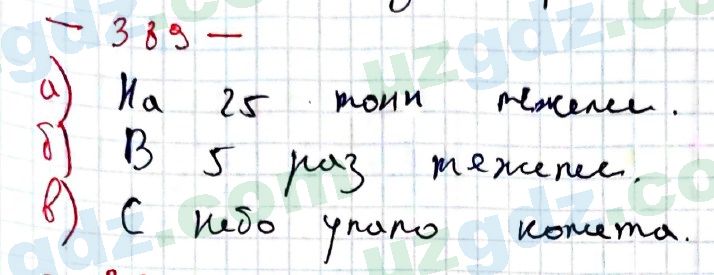 - 389 -
а) На 25 тонн тяжелее.
б) В 5 раз тяжелее.
в) С небо упало комета.